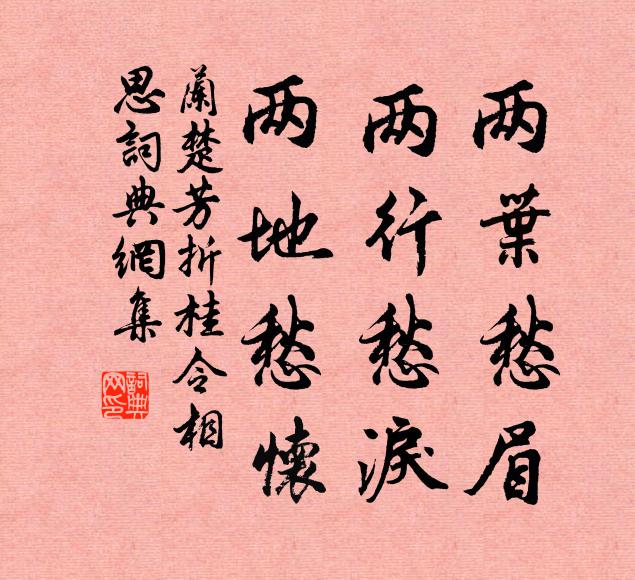 两葉愁眉
两行愁淚
两地愁懷
蘭楚芳折桂令相
思詞典網集
詞典
网印